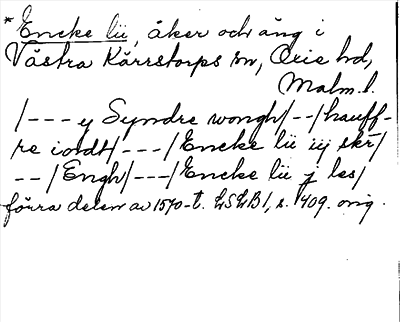 * Encke lü, åker och äng i
Västra Kärrstorps sn, Oxie hd,
Malm. l.
/--- y Syndre wongh/--/hauff-
re iordt/---/Encke lü iij skr/
--/Engh/---/Encke lü j les/
förra delen av 1570-t. LSLB 1, s. 409. orig.